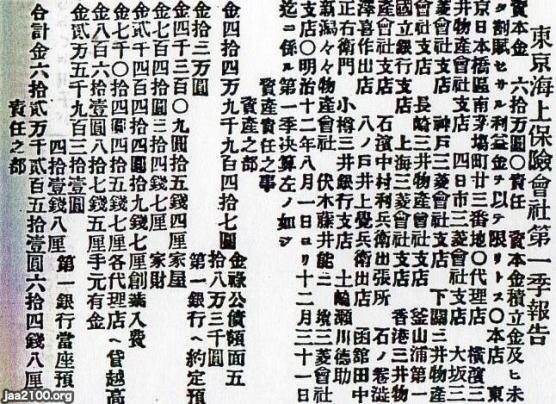 東京海上保險會社第一季報告
資本金 六拾万圓〇責任 資本金積立金及ヒ未
タ割賦セサル利益金ヲ以テ限リトス〇本店 東
京日本橋區南茅塲町廿三番地〇代理店 横濱三
井物產會社支店 四日市三菱會社支店 大坂三
菱會社支店 神戸三菱會社支店 下關三井物產
會社支店 長崎三井物產會社支店 釜山浦第一
國立銀行支店 上海三菱會社支店 香港三井物
產會社支店 石濱中村利兵衛出張所 石ノ卷澁
澤喜作出店 八ノ戸井上覺兵衛出店 函舘田中
正右衛門 小樽三井銀行支店 土崎瀬川德助
新潟々々物產會社 伏木藤井能三 堺三菱會社
支店〇明治十二年八月一日ヨリ十二月三十一日
迄ニ係ル第一季决算左ノ如シ
資產責任之事
資產之部
金四拾四万九千九百四拾七圓 金祿公債額面五
拾八万三千圓
金拾三万圓 第一銀行ヘ約定預
金四千三百〇九圓拾五錢四厘 家屋
金七百四拾圓三拾四錢七厘 家財
金貳千四百拾四圓拾九錢七厘 創業入費
金七千〇拾四圓四拾五錢七厘 各代理店ヘ貸越高
金八百六拾壹圓八拾七錢五厘 手元有金
金貳万五千九百三拾壹圓
四拾壹錢八厘 第一銀行當座預
合計金六拾貳万千貳百五拾壹圓六拾四錢八厘
責任之部
jaa2100.org